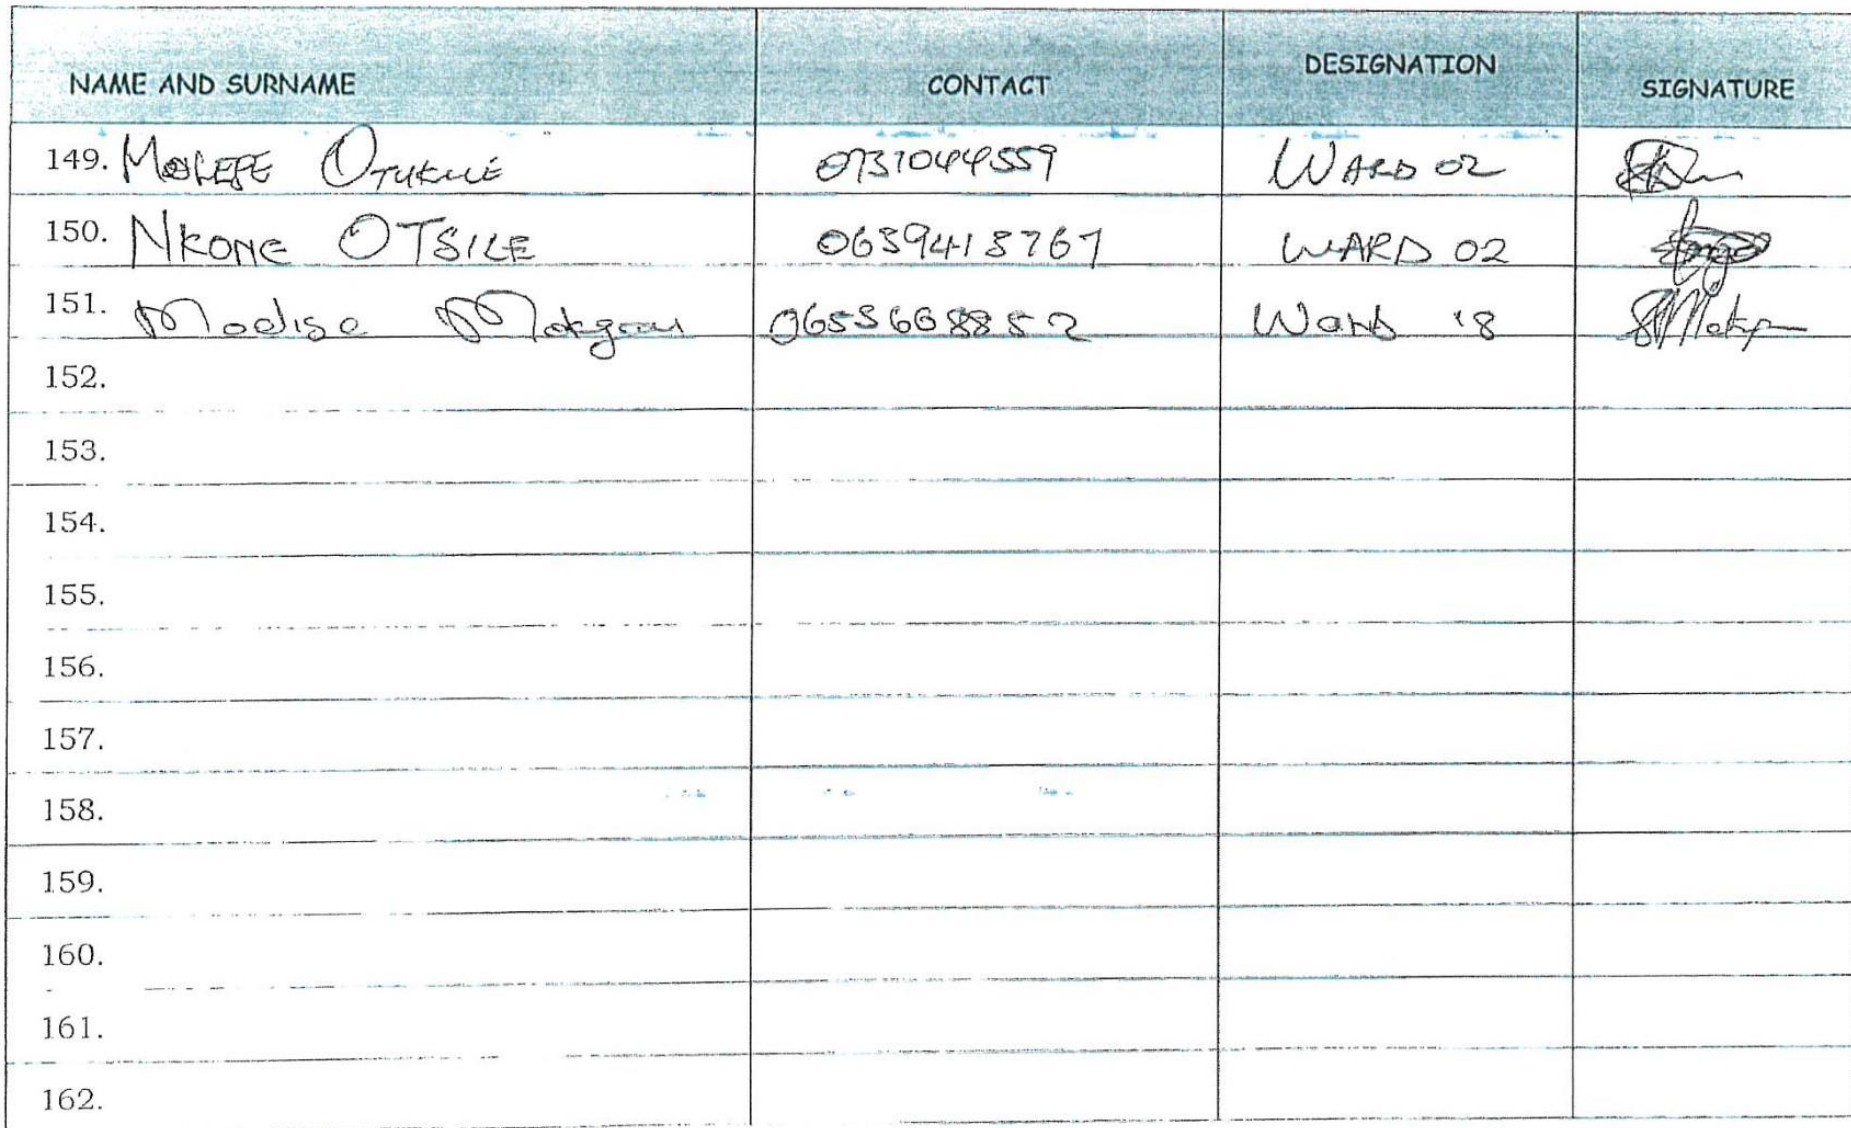 NAME AND SURNAME CONTACT DESIGNATION SIGNATURE
149. MOLEFE 0737044559 WARD 02
150. NKONE OTSILE 0639413767 WARD 02
151. Modise 0653668852 Ward 18
152.
153.
154.
155.
156.
157.
158.
159.
160.
161.
162.